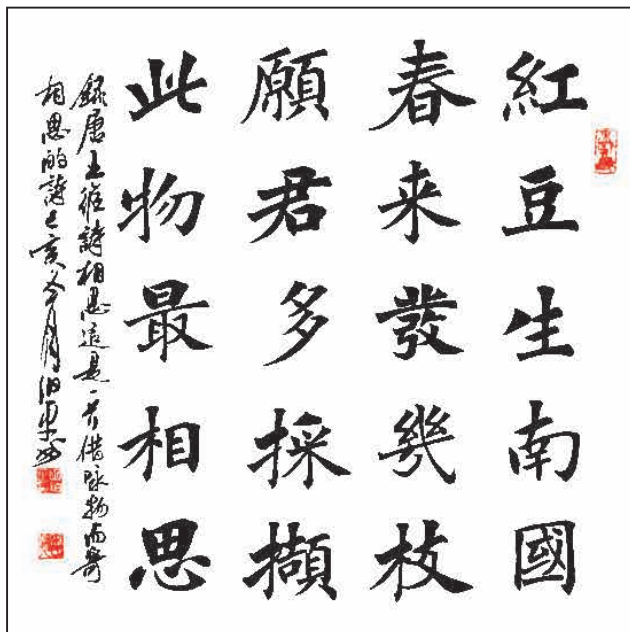 紅豆生南國
春来發幾枝
願君多採擷
此物最相思
錄唐王維詩相思這是一首借詠物而寄
相思的詩己亥年月